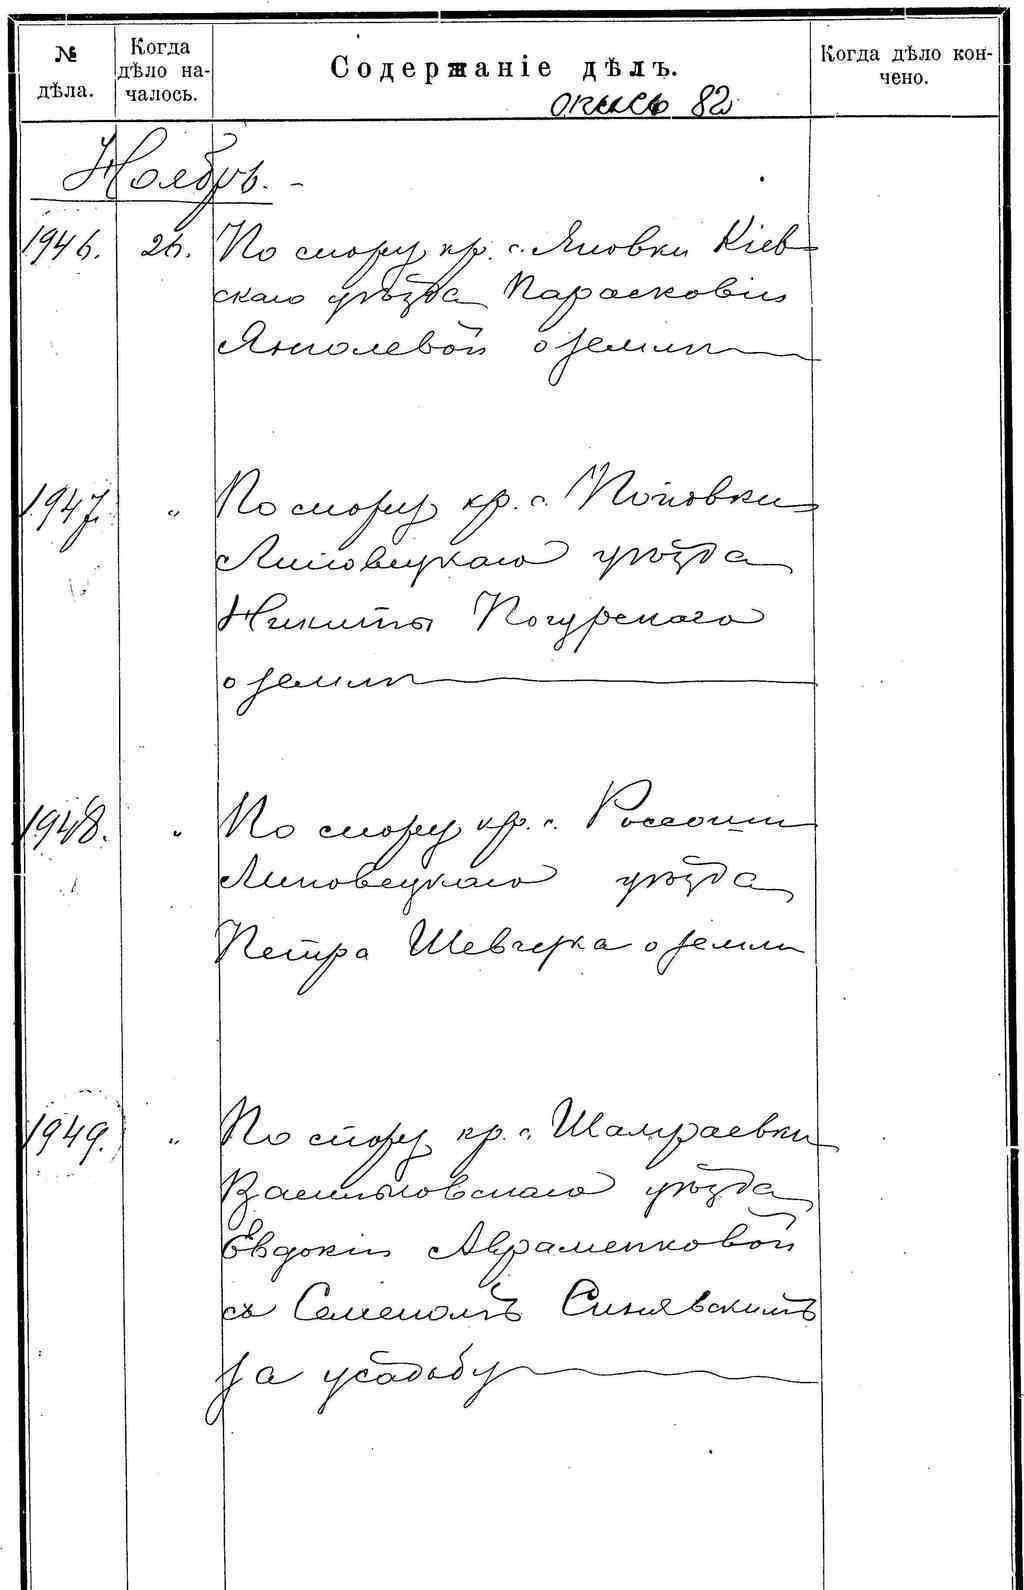 № дѣла.
Когда дѣло на-
чалось.
Содержаніе дѣлъ.
Когда дѣло кон-
чено.
опись 82
Ноябрь.
1946. 26. По спору кр. с. Яновки Кіев-
скаго уѣзда Парасковіи
Ямполевой о землѣ
1947. " По спору кр. с. Поповки
Липовецкаго уѣзда
Никиты Погурскаго
о землѣ
1948. " По спору кр. с. Россоши
Липовецкаго уѣзда
Петра Шевчука о землѣ
1949. " По спору кр. с. Шамраевки
Васильковскаго уѣзда
Евдокіи Авраменковой
съ Семеномъ Синявскимъ
за усадьбу